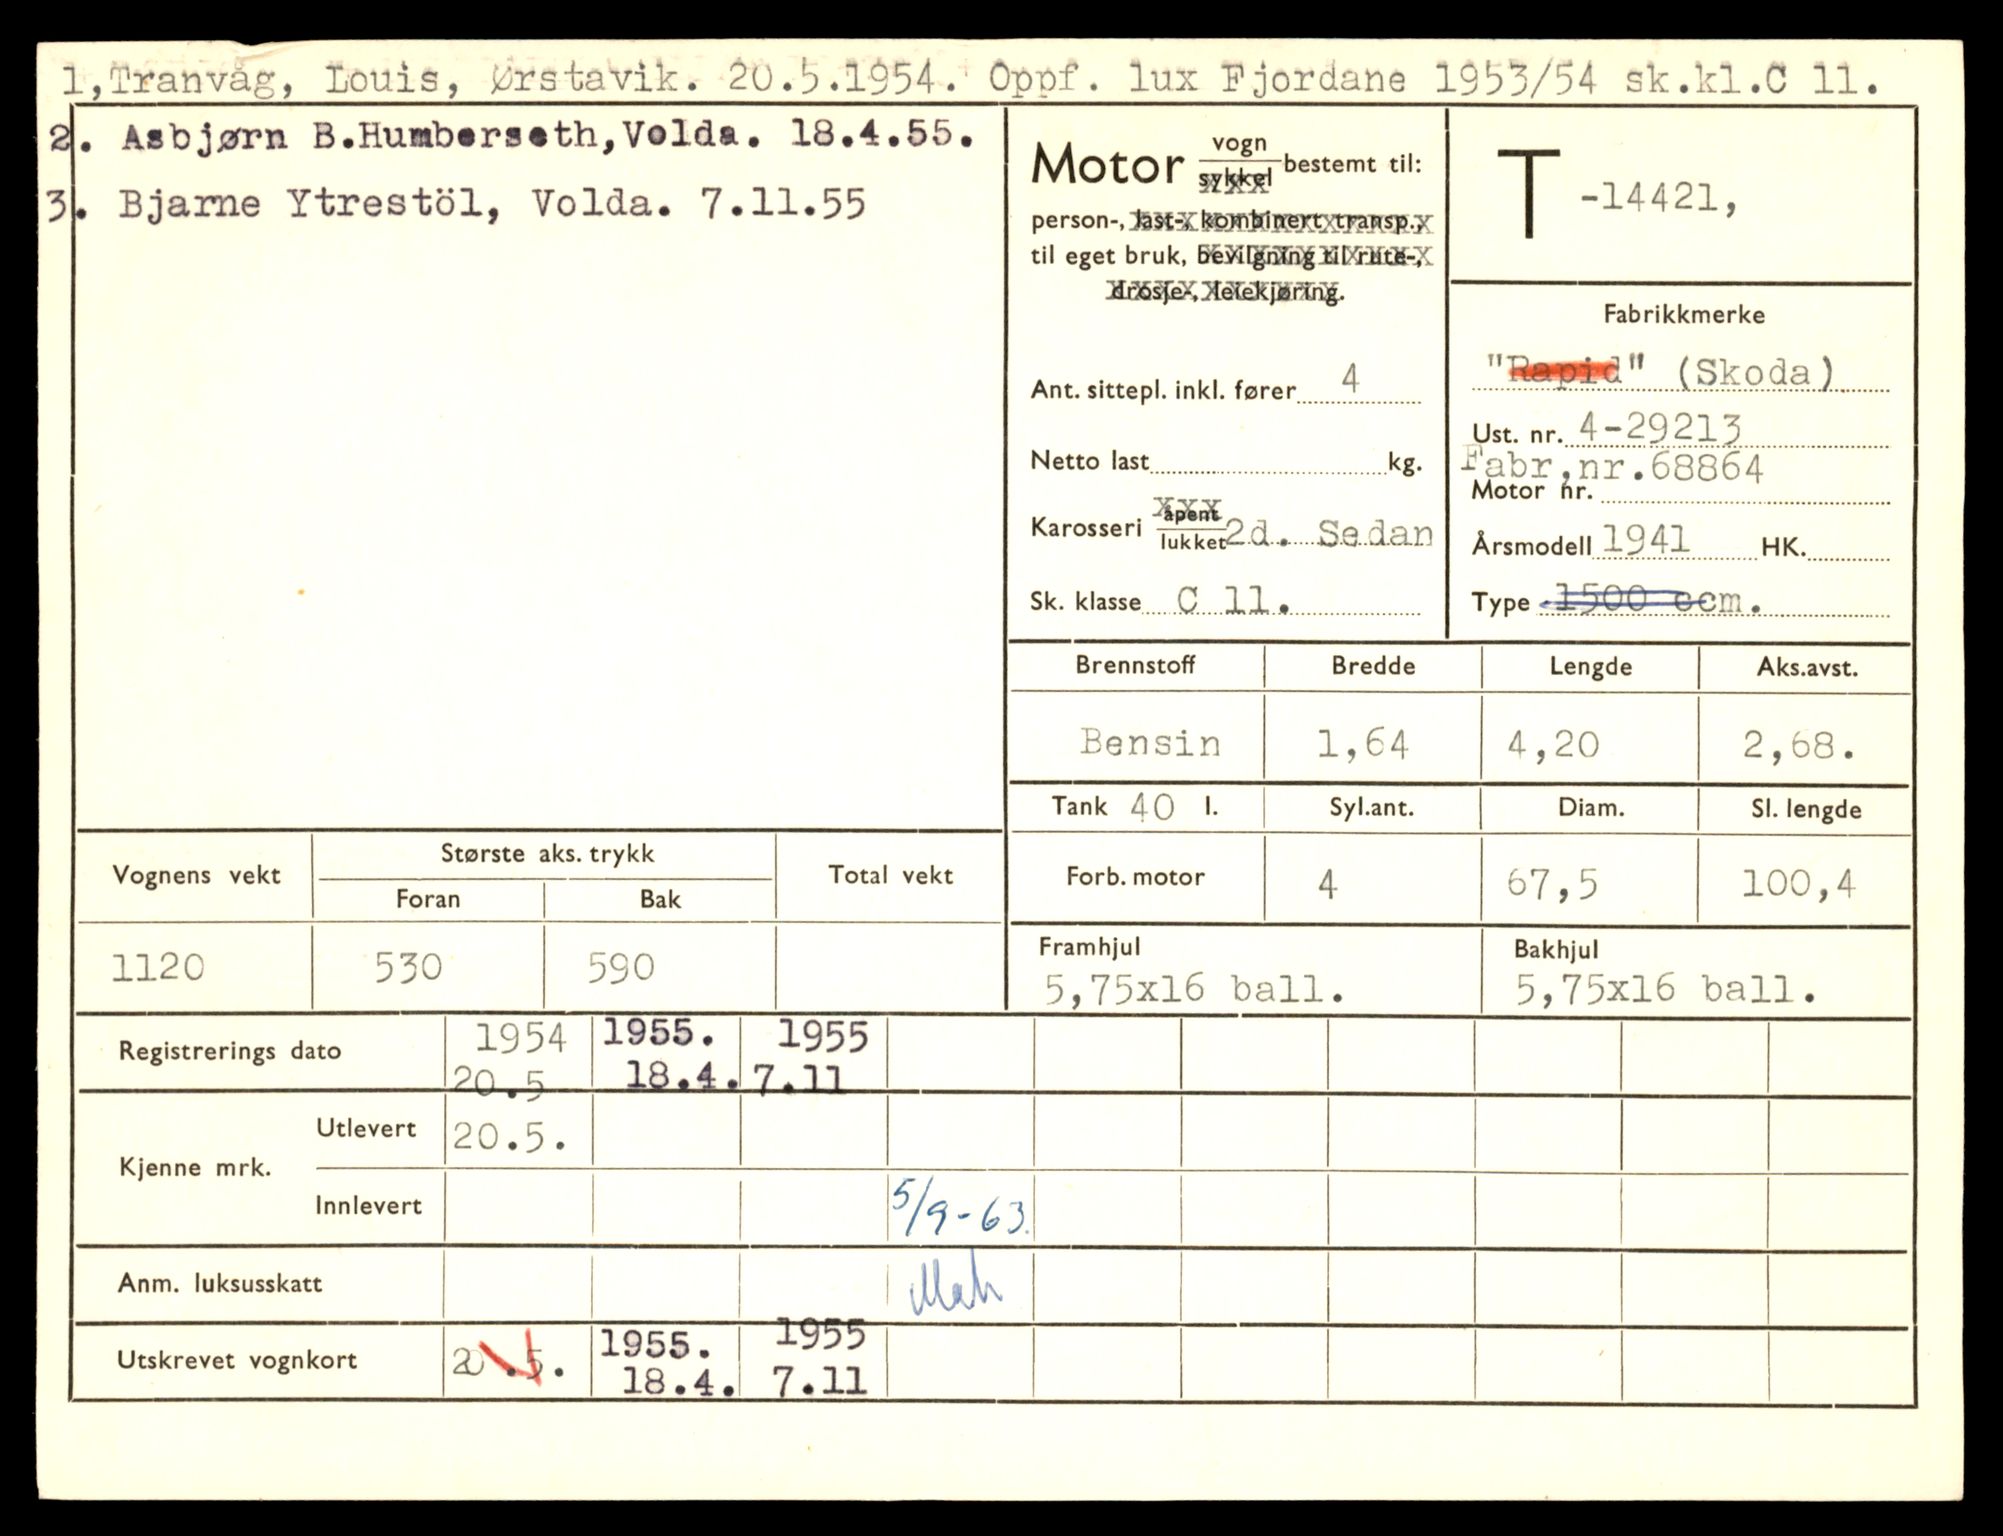 1,Tranvåg, Louis, Ørstavik. 20.5.1954. Oppf. lux Fjordane 1953/54 sk.kl.C 11.
2. Asbjørn B.Humberseth,Volda. 18.4.55.
3. Bjarne Ytrestöl, Volda. 7.11.55
Motor vogn sykkel bestemt til:
person-, last-, kombinert transp.,
til eget bruk, bevilgning til rute-,
drosje-, leiekjøring.
Ant. sittepl. inkl. fører 4
Netto last kg.
Karosseri åpent lukket 2d. Sedan
Sk. klasse C 11.
T -14421,
Fabrikkmerke
"Rapid" (Skoda)
Ust. nr. 4-29213
Fabr,nr.68864
Motor nr.
Årsmodell 1941 HK.
Type 1500 ccm.
Brennstoff Bredde Lengde Aks.avst.
Bensin 1,64 4,20 2,68.
Tank 40 l. Syl.ant. Diam. Sl. lengde
Forb. motor 4 67,5 100,4
Framhjul Bakhjul
5,75x16 ball. 5,75x16 ball.
Vognens vekt Største aks. trykk Total vekt
Foran Bak
1120 530 590
Registrerings dato 1954 1955. 1955
20.5 18.4. 7.11
Kjenne mrk.
Utlevert 20.5.
Innlevert 5/9-63.
Anm. luksusskatt
Utskrevet vognkort 20.5. 1955. 1955
18.4. 7.11